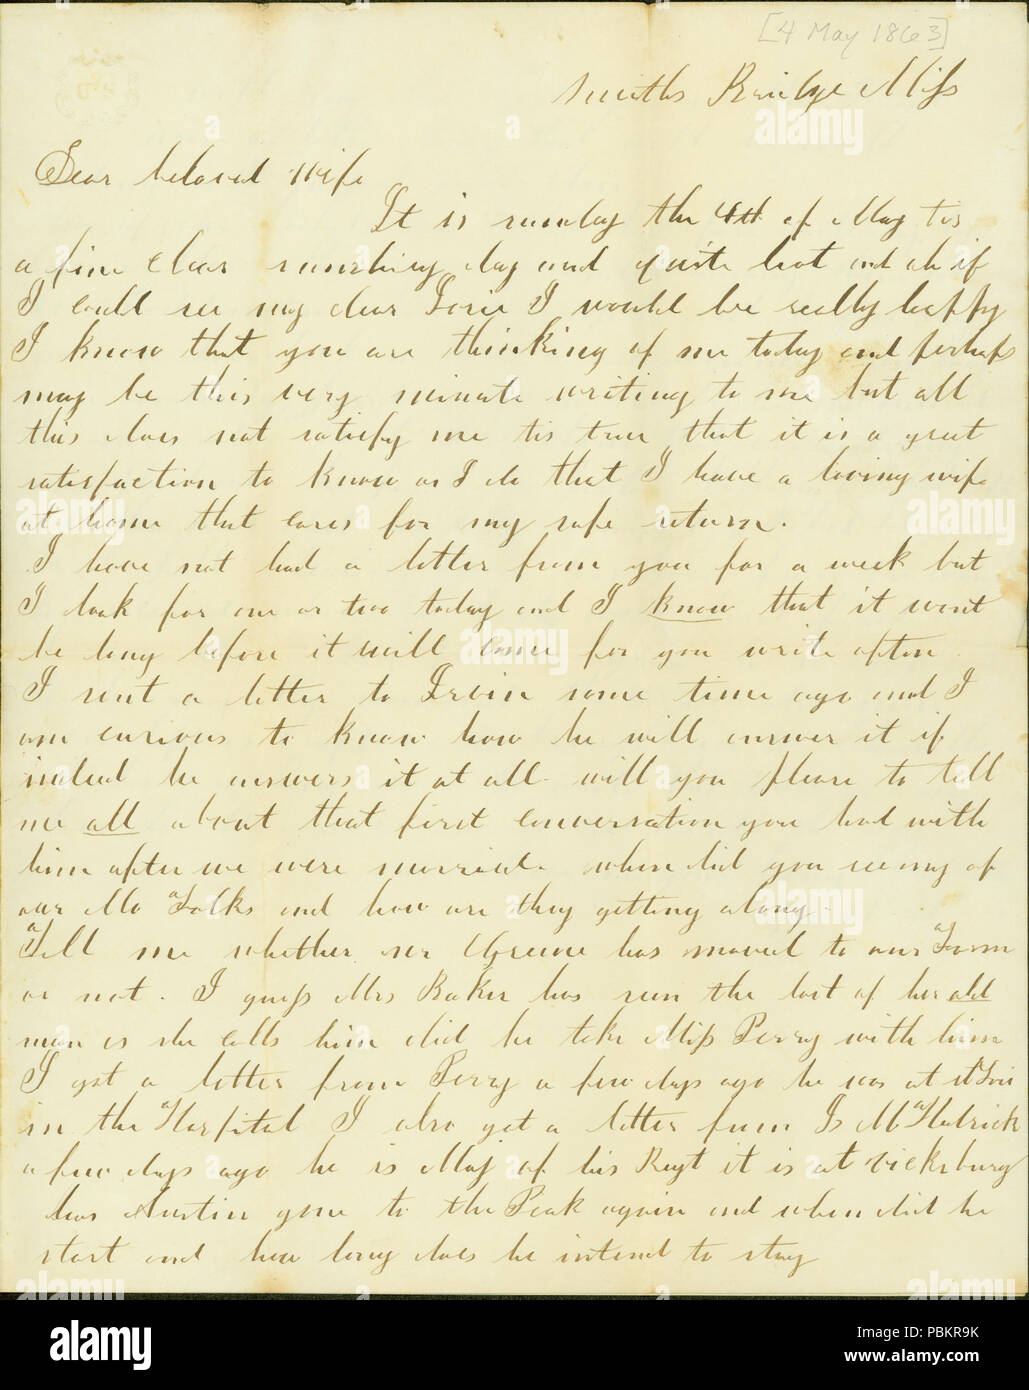 [4 May 1863]
Smiths Bridge Miss
Dear beloved Wife
It is sunday the 4th of May tis
a fine clear sunshiny day and quite hot and oh if
I could see my dear I would be really happy
I know that you are thinking of me today and perhaps
may be this very minute writing to me but all
this does not satisfy me tis true that it is a great
satisfaction to know as I do that I have a loving wife
at home that cares for my safe return.
I have not had a letter from you for a week but
I look for one or two today and I know that it wont
be long before it will come for you write often
I sent a letter to Irvin some time ago and I
am curious to know how he will answer it if
indeed he answers it at all. will you please to tell
me all about that first conversation you had with
him after we were married. when did you see any of
our Mo Folks and how are they getting along.
Tell me whether mr Greene has moved to our Farm
or not. I guess Mrs Baker has seen the last of her old
man as she calls him did he take Miss Perry with him
I got a letter from Perry a few days ago he was at St Louis
in the Hospital I also got a letter from Is
a few days ago he is Maj of his Regt it is at vicksburg
has Austin gone to the Peak again and when did he
start and how long does he intend to stay
alamy
Image ID: PBKR9K
www.alamy.com